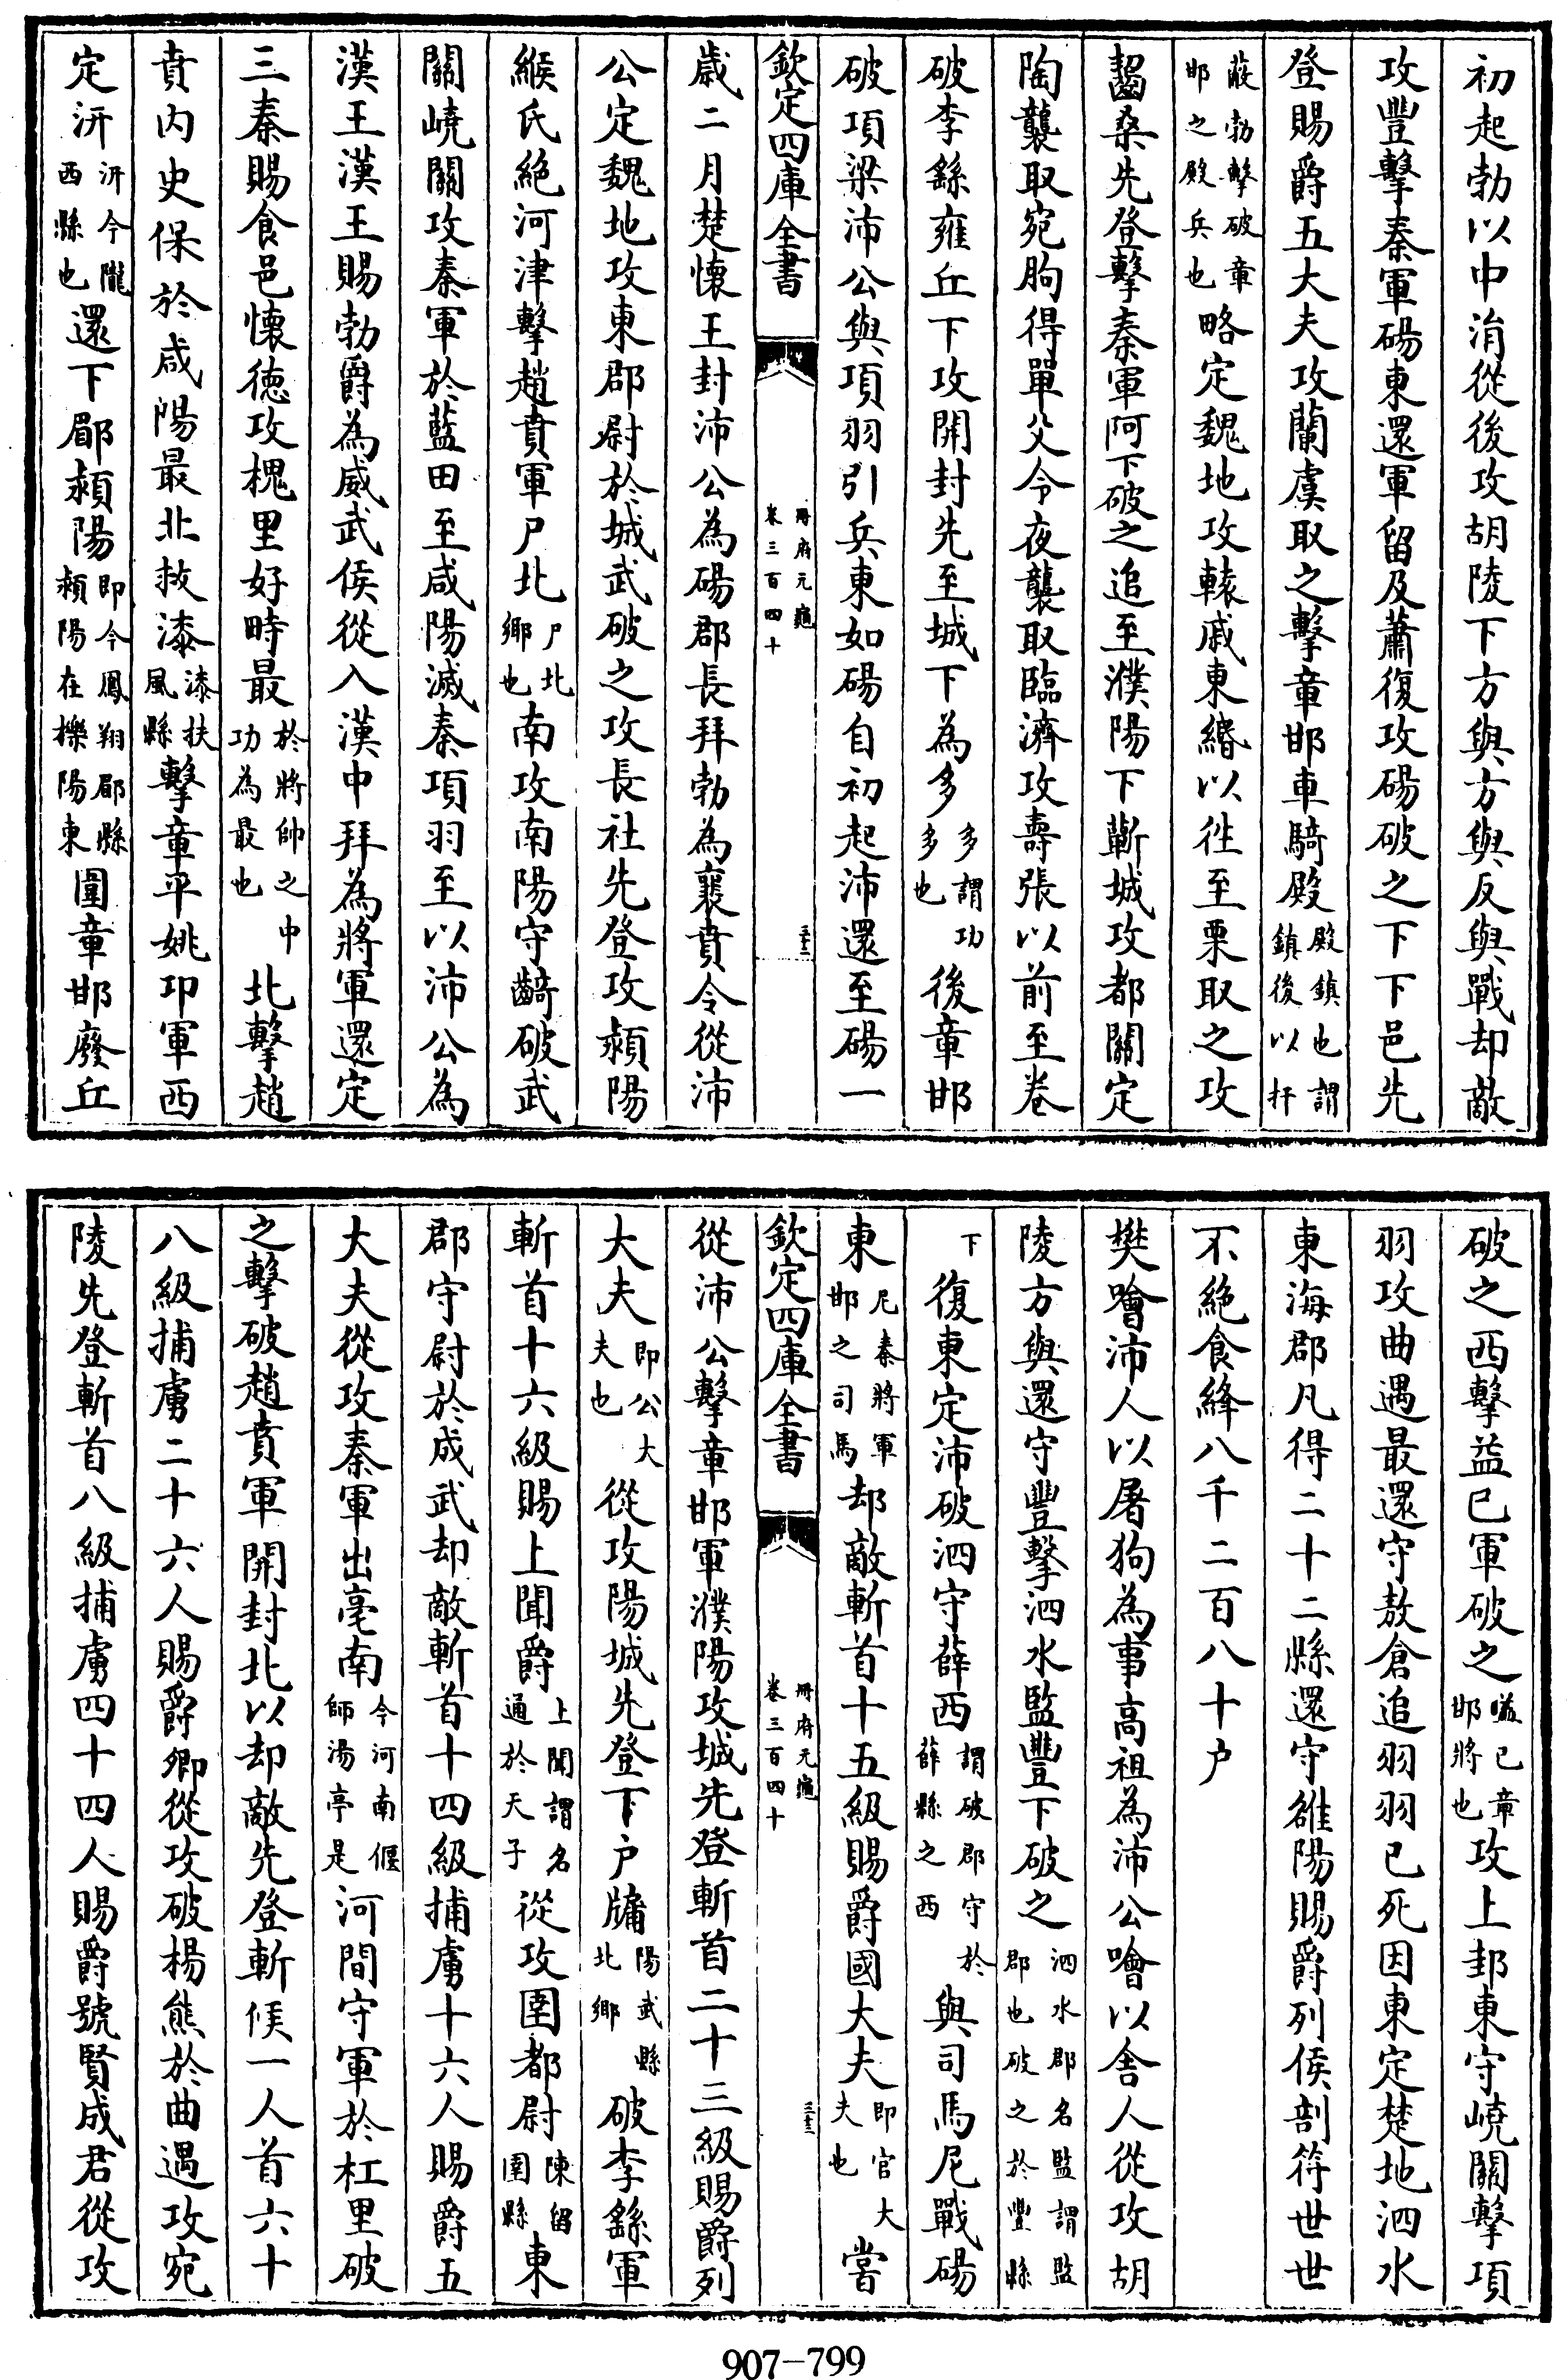 初起勃以中涓從後攻胡陵下方與方與反與戰却敵
攻豐擊秦軍碭東還軍留及蕭復攻碭破之下下邑先
登賜爵五大夫攻闌虞取之擊章邯車騎殿殿鎮也謂鎮後以扞
蔽勃擊破章邯之殿兵也略定魏地攻轅戚東緡以徃至栗取之攻
齧桑先登擊秦軍阿下破之追至濮陽下蘄城攻都關定
陶襲取宛朐得單父令夜襲取臨濟攻壽張以前至卷
破李繇雍丘下攻開封先至城下為多多謂功多也後章邯
破項梁沛公與項羽引兵東如碭自初起沛還至碭一
欽定四庫全書 冊府元龜卷三百四十 三十二
歲二月楚懷王封沛公為碭郡長拜勃為襄賁令從沛
公定魏地攻東郡尉於城武破之攻長社先登攻潁陽
緱氏絶河津擊趙賁軍尸北尸北鄉也南攻南陽守齮破武
關嶢關攻秦軍於藍田至咸陽滅秦項羽至以沛公為
漢王漢王賜勃爵為威武侯從入漢中拜為將軍還定
三秦賜食邑懷徳攻槐里好畤最於將帥之中功為最也北擊趙
賁内史保於咸陽最北救漆漆扶風縣擊章平姚卭軍西
定汧汧今隴西縣也還下郿潁陽即今鳳翔郿縣潁陽在櫟陽東圍章邯廢丘
破之西擊益已軍破之嗌已章邯將也攻上邽東守嶢關擊項
羽攻曲遇最還守敖倉追羽羽已死因東定楚地泗水
東海郡凡得二十二縣還守雒陽賜爵列侯剖符世世
不絶食絳八千二百八十户
樊噲沛人以屠狗為事高祖為沛公噲以舎人從攻胡
陵方與還守豐擊泗水監豐下破之泗水郡名監謂監郡也破之於豐縣
下復東定沛破泗守薛西謂破郡守於薛縣之西與司馬㞾戰碭
東㞾秦將軍邯之司馬却敵斬首十五級賜爵國大夫即官大夫也嘗
欽定四庫全書 冊府元龜卷三百四十 三十三
從沛公擊章邯軍濮陽攻城先登斬首二十三級賜爵列
大夫即公大夫也從攻陽城先登下户牖陽武縣北鄉破李繇軍
斬首十六級賜上聞爵上聞謂名通於天子從攻圉都尉陳留圉縣東
郡守尉於成武却敵斬首十四級捕虜十六人賜爵五
大夫從攻秦軍出亳南今河南偃師湯亭是河間守軍於杠里破
之擊破趙賁軍開封北以却敵先登斬候一人首六十
八級捕虜二十六人賜爵卿從攻破楊熊於曲遇攻宛
陵先登斬首八級捕虜四十四人賜爵號賢成君從攻
907-799